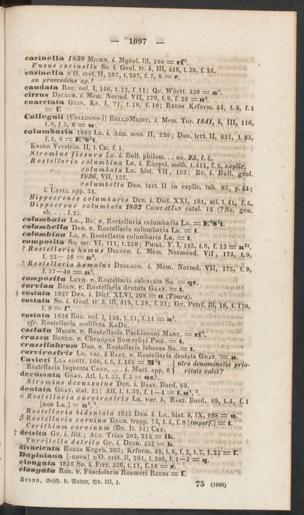 — 1097 —
carinella 1838 Michn. i. Mgéol. III, 100 = rf¹.
Fusus carinella So. i. Geol. tr. b, III, 418, t. 39, f. 24.
carinella d'O. crét. II, 287, t. 207, f. 7, 8 = r.
an praecedens sp.?
caudata Roe. ool. I, 156, t. 12, f. 11; Qu. Württ. 439 = n².
cirrus Deslch. i. Mém. Normd. VII, 178, t. 9, f. 26 = n³.
coarctata Gein. Kr. I, 71, t. 18, f. 10; Reuss Krform. 44, t. 9, f. 1
= f¹.
Collegnii [Collegno-i] BellMicht. i. Mem. Tor. 1841, b, III, 116,
t. 6, f. 5, 6 = w.
columbaria 1802 Lk. i. Ann. mus. II, 220; Dsh. tert. II, 621, t. 83,
Knorr Verstein. II, t. CII, f. 1.
Strombus fissura Lk. i. Bull. philom. . . no. 25, f. 4.
Rostellaria columbina Lk. i. Encycl. méth. t. 411, f. 2, explic.
columbata Lk. hist. VII, 193; Be. i. Bull. géol.
1836, VII, 157.
columbella Dsh. tert. II in explic. tab. 83, p. 44;
i. Lyell app. 34.
Hippocrenes columbaria Dfr. i. Dict. XXI, 181, all. t. 41, f. 5,
Hippocrenes columbata 1832 Christ.-Jan catal. 13 (?So. gen.
sh. . . . f. 2).
columbata Lk., Be. v. Rostellaria columbaria Lk.
columbella Dsh. v. Rostellaria columbaria Lk. = t.
columbina Lk. v. Rostellaria columbaria Lk. = t
composita So. mc. VI, 111, t. 558; Phill. Y. I, 105, t. 6, f. 13 = n²³.
? Rostellaria hamus Deslch. i. Mém. Normand. VII, 173, t. 9,
f. 25— 26 = n³.
? Rostellaria hamulus Deslch. i. Mém. Normd. VII, 175, t. 9,
f. 37—40 = n³.
composita Leym. v. Rostellaria calcarata So. = qr.
corvina Brgn. v. Rostellaria dentata Grat. = t.
costata 1827 Dfr. i. Dict. XLVI, 298 = u (Tours).
costata So. i. Geol. tr. b, III, 419, t. 38, f. 21; Gr. Petrf. III, 18, t. 170,
f. 9 = f¹.
costata 1836 Roe. ool. I, 136, t. 11, f. 11 = n³.
cfr. Rostellaria nodifera KaDu.
costata Michn. v. Rostellaria Parkinsoni Mant. = rf¹.
crassa Brtho. v. Chenopus Sowerbyi Phil. = t.
crassilabrum Dsh. v. Rostellaria labrosa So. = t.
curvirostris Lk. var. b Bast. v. Rostellaria dentata Grat. = u.
Cuvieri Lea contr. 160, t. 5, f. 165 = M¹t
Rostellaria laqueata Conn. . . . i. Macl. app. 6
utra denominatio prioritate colet?
decussata Grat. Atl. I, t. 33, f. 2 = u².
Strombus decussatus Dfr. i. Bast. Bord. 69.
dentata Grat. cat. 12; Atl. I, t. 32, f. 1—4 = t, u¹, ².
α Rostellaria curvirostris Lk. var. b, Bast. Bord. 69, t. 4, f. 1
[non Lk.] = u¹.
? Rostellaria bidentata 1811 Dsh. i. Lk. hist. b, IX, 668 = u.
β Rostellaria corvina Brgn. trapp. 75, t. 4, f. 8 [imperf.] = t.
Cerithium corvinum (Br. It. 51) Cat.
detrita Gr. i. litt.; Alb. Trias 202, 315 = ik.
Turritella detrita Gr. i. Dech. 455 = k.
divaricata Reuss Kregeb. 202; Krform. 46, t. 9, f. 2, t. 7, f. 23 = f¹.
Dupiniana [-nana] d'O. crét. II, 281, t. 206, f. 1—3 = q.
elongata 1836 So. i. Fitt. 336, t. 11, f. 16 = r.
elongata Roe. v. Fasciolaria Roemeri Reuss = f¹.
Bronn, Gesch. d. Natur, Bd. III, 1. 75 (1838)